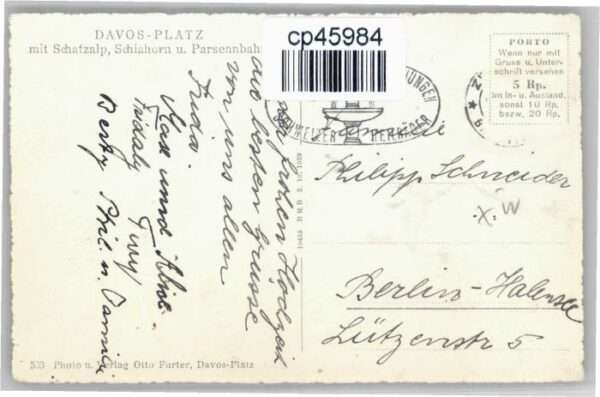 DAVOS-PLATZ
mit Schatzalp, Schiahorn u. Parsennbahn
cp45984
PORTO
Wenn nur mit
Gruss u. Unter-
schrift versehen
5 Rp.
im In- u. Ausland,
sonst 10 Rp.
bezw. 20 Rp.
SCHWEIZER HEILBÄDER
frohen Hochzeit
die besten Grüsse
von uns allen
Frida.
Max und
Betty Phil. u. Familie
Familie
Philipp Schneider
X. W
Berlin-Halensee
Lützenstr 5
533 Photo u. Verlag Otto Furter, Davos-Platz